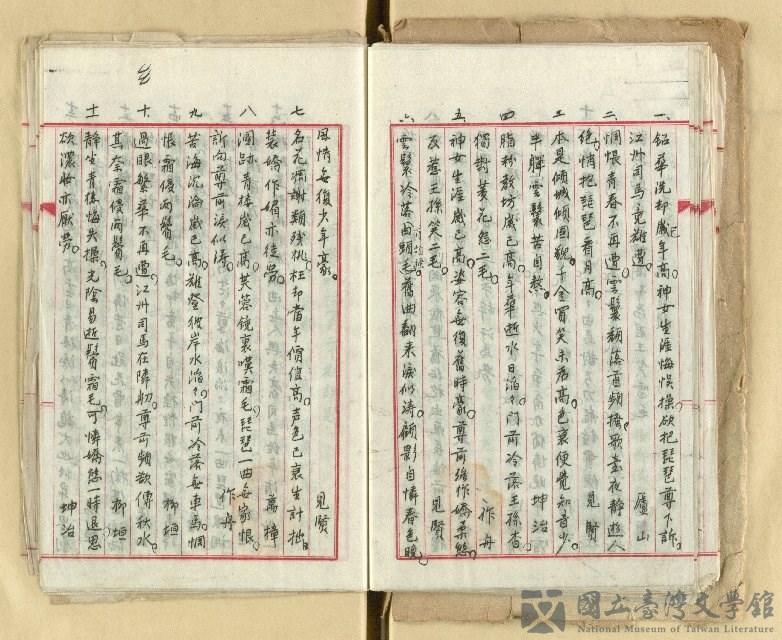 一 鉛華洗却歲已年高。神女生涯悔悞操。欲把琵琶尊下訴。
江州司馬竟難遭。 廬山
二 惆悵青春不再遭。雲鬟翻落首頻搔。歌臺夜静遊人
絶。悄抱琵琶看月高。 見賢
三 本是傾城傾國貌。千金買笑未君高。色衰便覺知音少。
半軃雲鬟苦自熬。 坤治
四 脂粉教坊歲已高。年華逝水日滔々。門前冷落王孫杳。
獨對黃花怨二毛。 祚舟
五 神女生涯歲已高。姿容無復舊時豪。尊前強作嬌柔態。
反惹王孫笑二毛。 見賢
六 雲鬟冷落困頭毛。舊曲翻來淚似濤。顧影自憐春色晚。
風情無復少年豪。 見賢
七 名花凋謝類殘桃。枉却當年價值高。声色已衰生計拙。
裝嬌作媚亦徒勞。 萬撞
八 溷跡青樓歲已高。芙蓉鏡裏嘆霜毛。琵琶一曲無家恨。
訴向尊前淚似濤。 祚舟
九 苦海沉淪歲已高。難登彼岸水滔々。門前冷落無車馬。惆
恨霜侵兩鬢毛。 柳垣
十 過眼繁華不再遭。江州司馬在隣舠。尊前頻欲傳秋水。
其奈霜侵兩鬢毛。 柳垣
十一 静坐青樓悔失操。光陰易逝鬢霜毛。可憐嬌態一時退。思
欲濃妝亦厭勞。 坤治
國立臺灣文學館
National Museum of Taiwan Literature